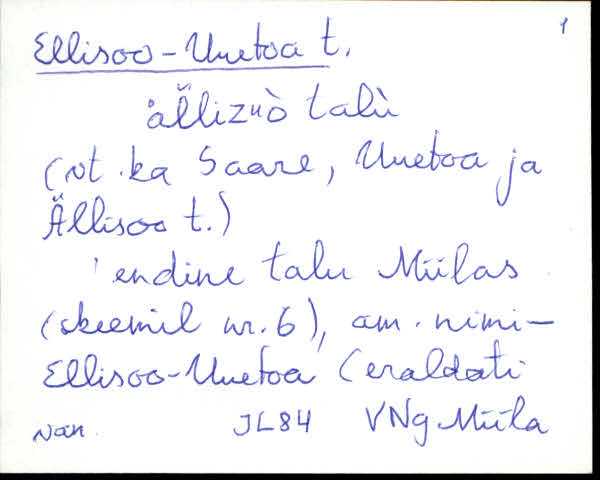 1
Ellisoo-Uuetoa t.
ällizuò talù
(vt. ka Saare, Uuetoa ja
Ällisoo t.)
'endine talu Miilas
(skeemil nr. 6), am. nimi-
Ellisoo-Uuetoa (eraldati
JL84 VNg Miila